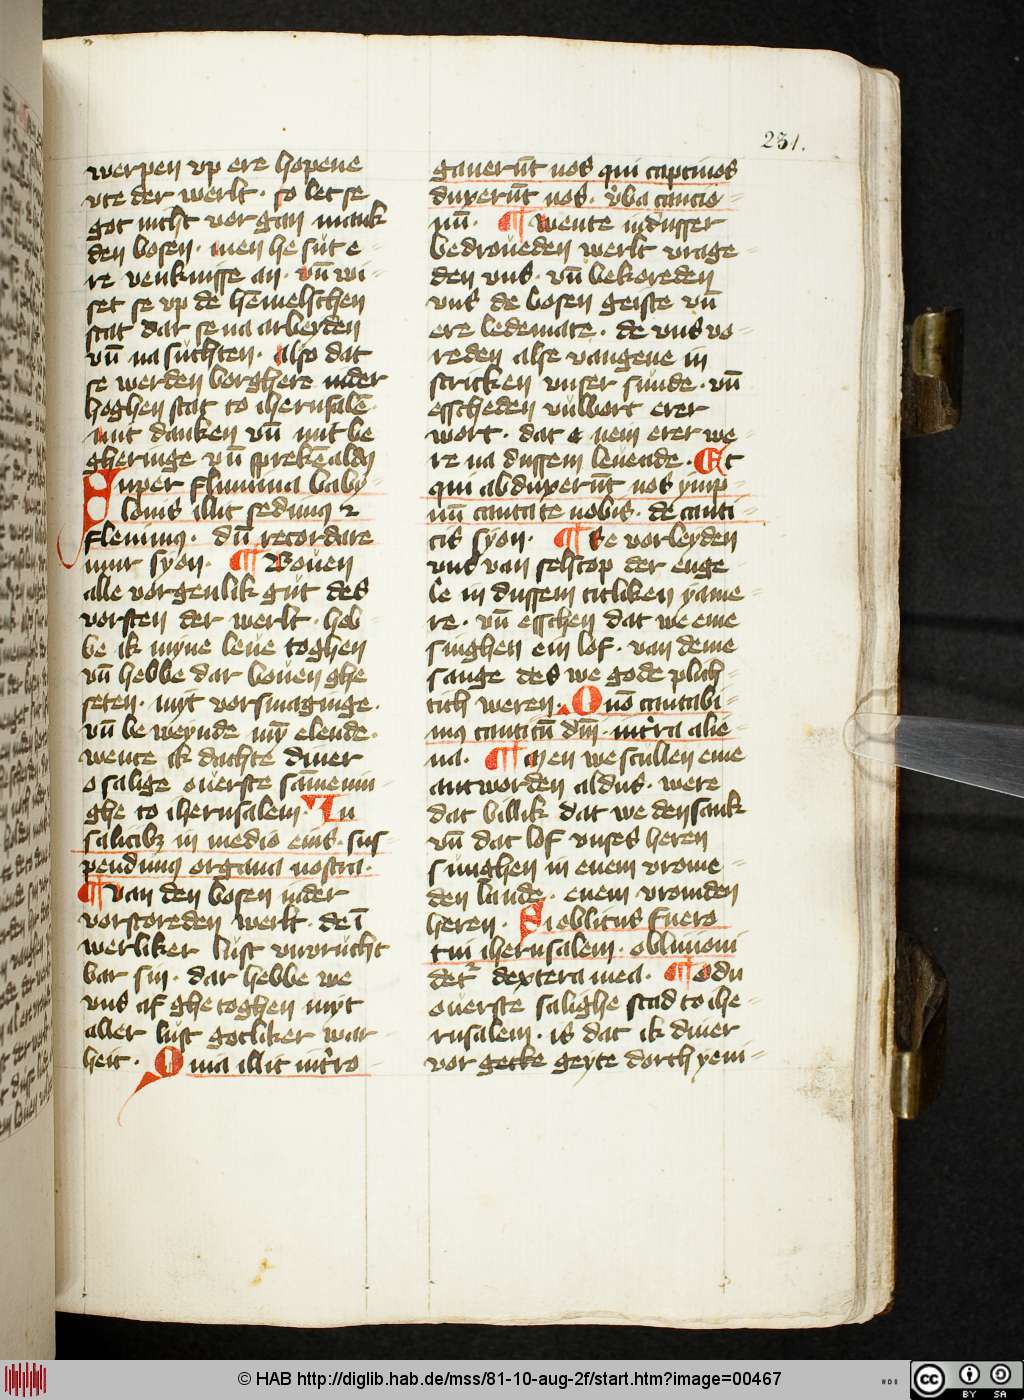 231.
werpen vp ere hopene
vte der werlt · so let se
got nicht vorgan mank
den bosen · men he sut e-
re venknisse an · vn̄ wi-
set se vp de hēmelschen
stat dar se na arbeyden
vn̄ na suchten · also dat
se werden borghere inder
hoghen stat to iherusalē ·
mit danken vn̄ mit be
gheringe vn̄ sprekē aldꝯ
Super flumina baby-
lonis illic sedimꝯ ⁊
fleuimꝯ · dū recordare
mur syon · ¶ Bouen
alle vorgenklik gut des
vorsten der werlt · heb
be ik myne leue toghen
vn̄ hebbe dar bouen ghe
seten · myt vorsmaginge ·
vn̄ beweynde mȳ elende ·
wente ik dachte diner
o salige ouerste sāmenin-
ghe to iherusalem · In
salicibꝫ in medio eius · sus
pendimꝯ organa nostra ·
¶ van den bosen inder
vorstoreden werlt · de ī
werliker lust vnvrucht
bar sin · dar hebbe we
vns af ghetoghen myt
aller lust gotliker war
heit · Quia illic int͛ro
gauerūt nos qui captiuos
duxerūt nos · v͛ba cancio-
nū · ¶ wente in dusser
bedroueden werlt vrage-
den vns · vn̄ bekoreden
vns de bosen geiste vn̄
ere ledemate · de vns vo-
reden alse vangene in
stricken vnser sunde · vn̄
esscheden vulbort erer
wort · dat e nem erer we-
re na dussem leuende · Et
qui abduxerūt nos ymp-
nū cantate nobis · de canti-
cis syon · ¶ Se vorleyden
vns van selscop der enge-
le in dussem titliken yame-
re · vn̄ esschen dat we eme
singhen ein lof · van deme
sange des we gode plich-
tich weren · Quō cantabi-
mꝯ canticū dn̄i · int͛ra alie-
na · ¶ Men we scullen eme
antworden aldus · were
dat billik dat we den sank
vn̄ dat lof vnses heren
sunghen in enem vrome-
den lande · enem vromden
heren · Si oblitus fuero
tui iherusalem · obliuioni
det͛ dextera mea · ¶ O du
ouerste salighe stad to ihe-
rusalem · is dat ik diner
vorgetke geyte dorch yeni-
© HAB http://diglib.hab.de/mss/81-10-aug-2f/start.htm?image=00467
cc BY SA